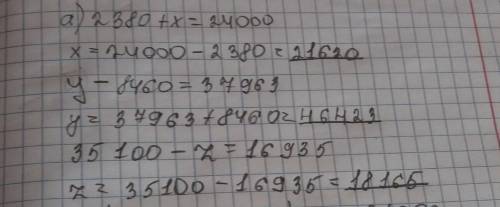 а) 2380 + x = 24000
x = 24000 - 2380 = 21620
y - 8460 = 37963
y = 37963 + 8460 = 46423
35100 - z = 16935
z = 35100 - 16935 = 18165